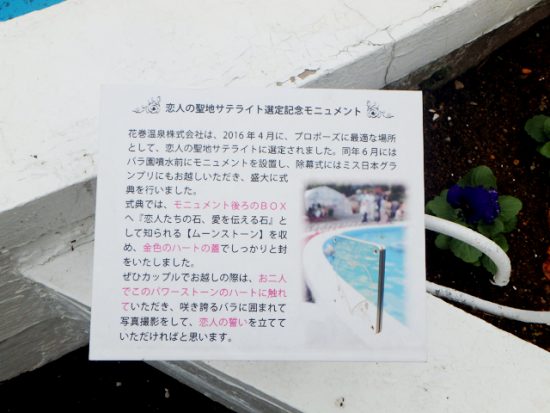 恋人の聖地サテライト選定記念モニュメント
花巻温泉株式会社は、2016年4月に、プロポーズに最適な場所
として、恋人の聖地サテライトに選定されました。同年6月には
バラ園噴水前にモニュメントを設置し、除幕式にはミス日本グラ
ンプリにもお越しいただき、盛大に式
典を行いました。
式典では、モニュメント後ろのBOX
へ『恋人たちの石、愛を伝える石』と
して知られる【ムーンストーン】を収
め、金色のハートの蓋でしっかりと封
をいたしました。
ぜひカップルでお越しの際は、お二人
でこのパワーストーンのハートに触れ
ていただき、咲き誇るバラに囲まれて
写真撮影をして、恋人の誓いを立てて
いただければと思います。